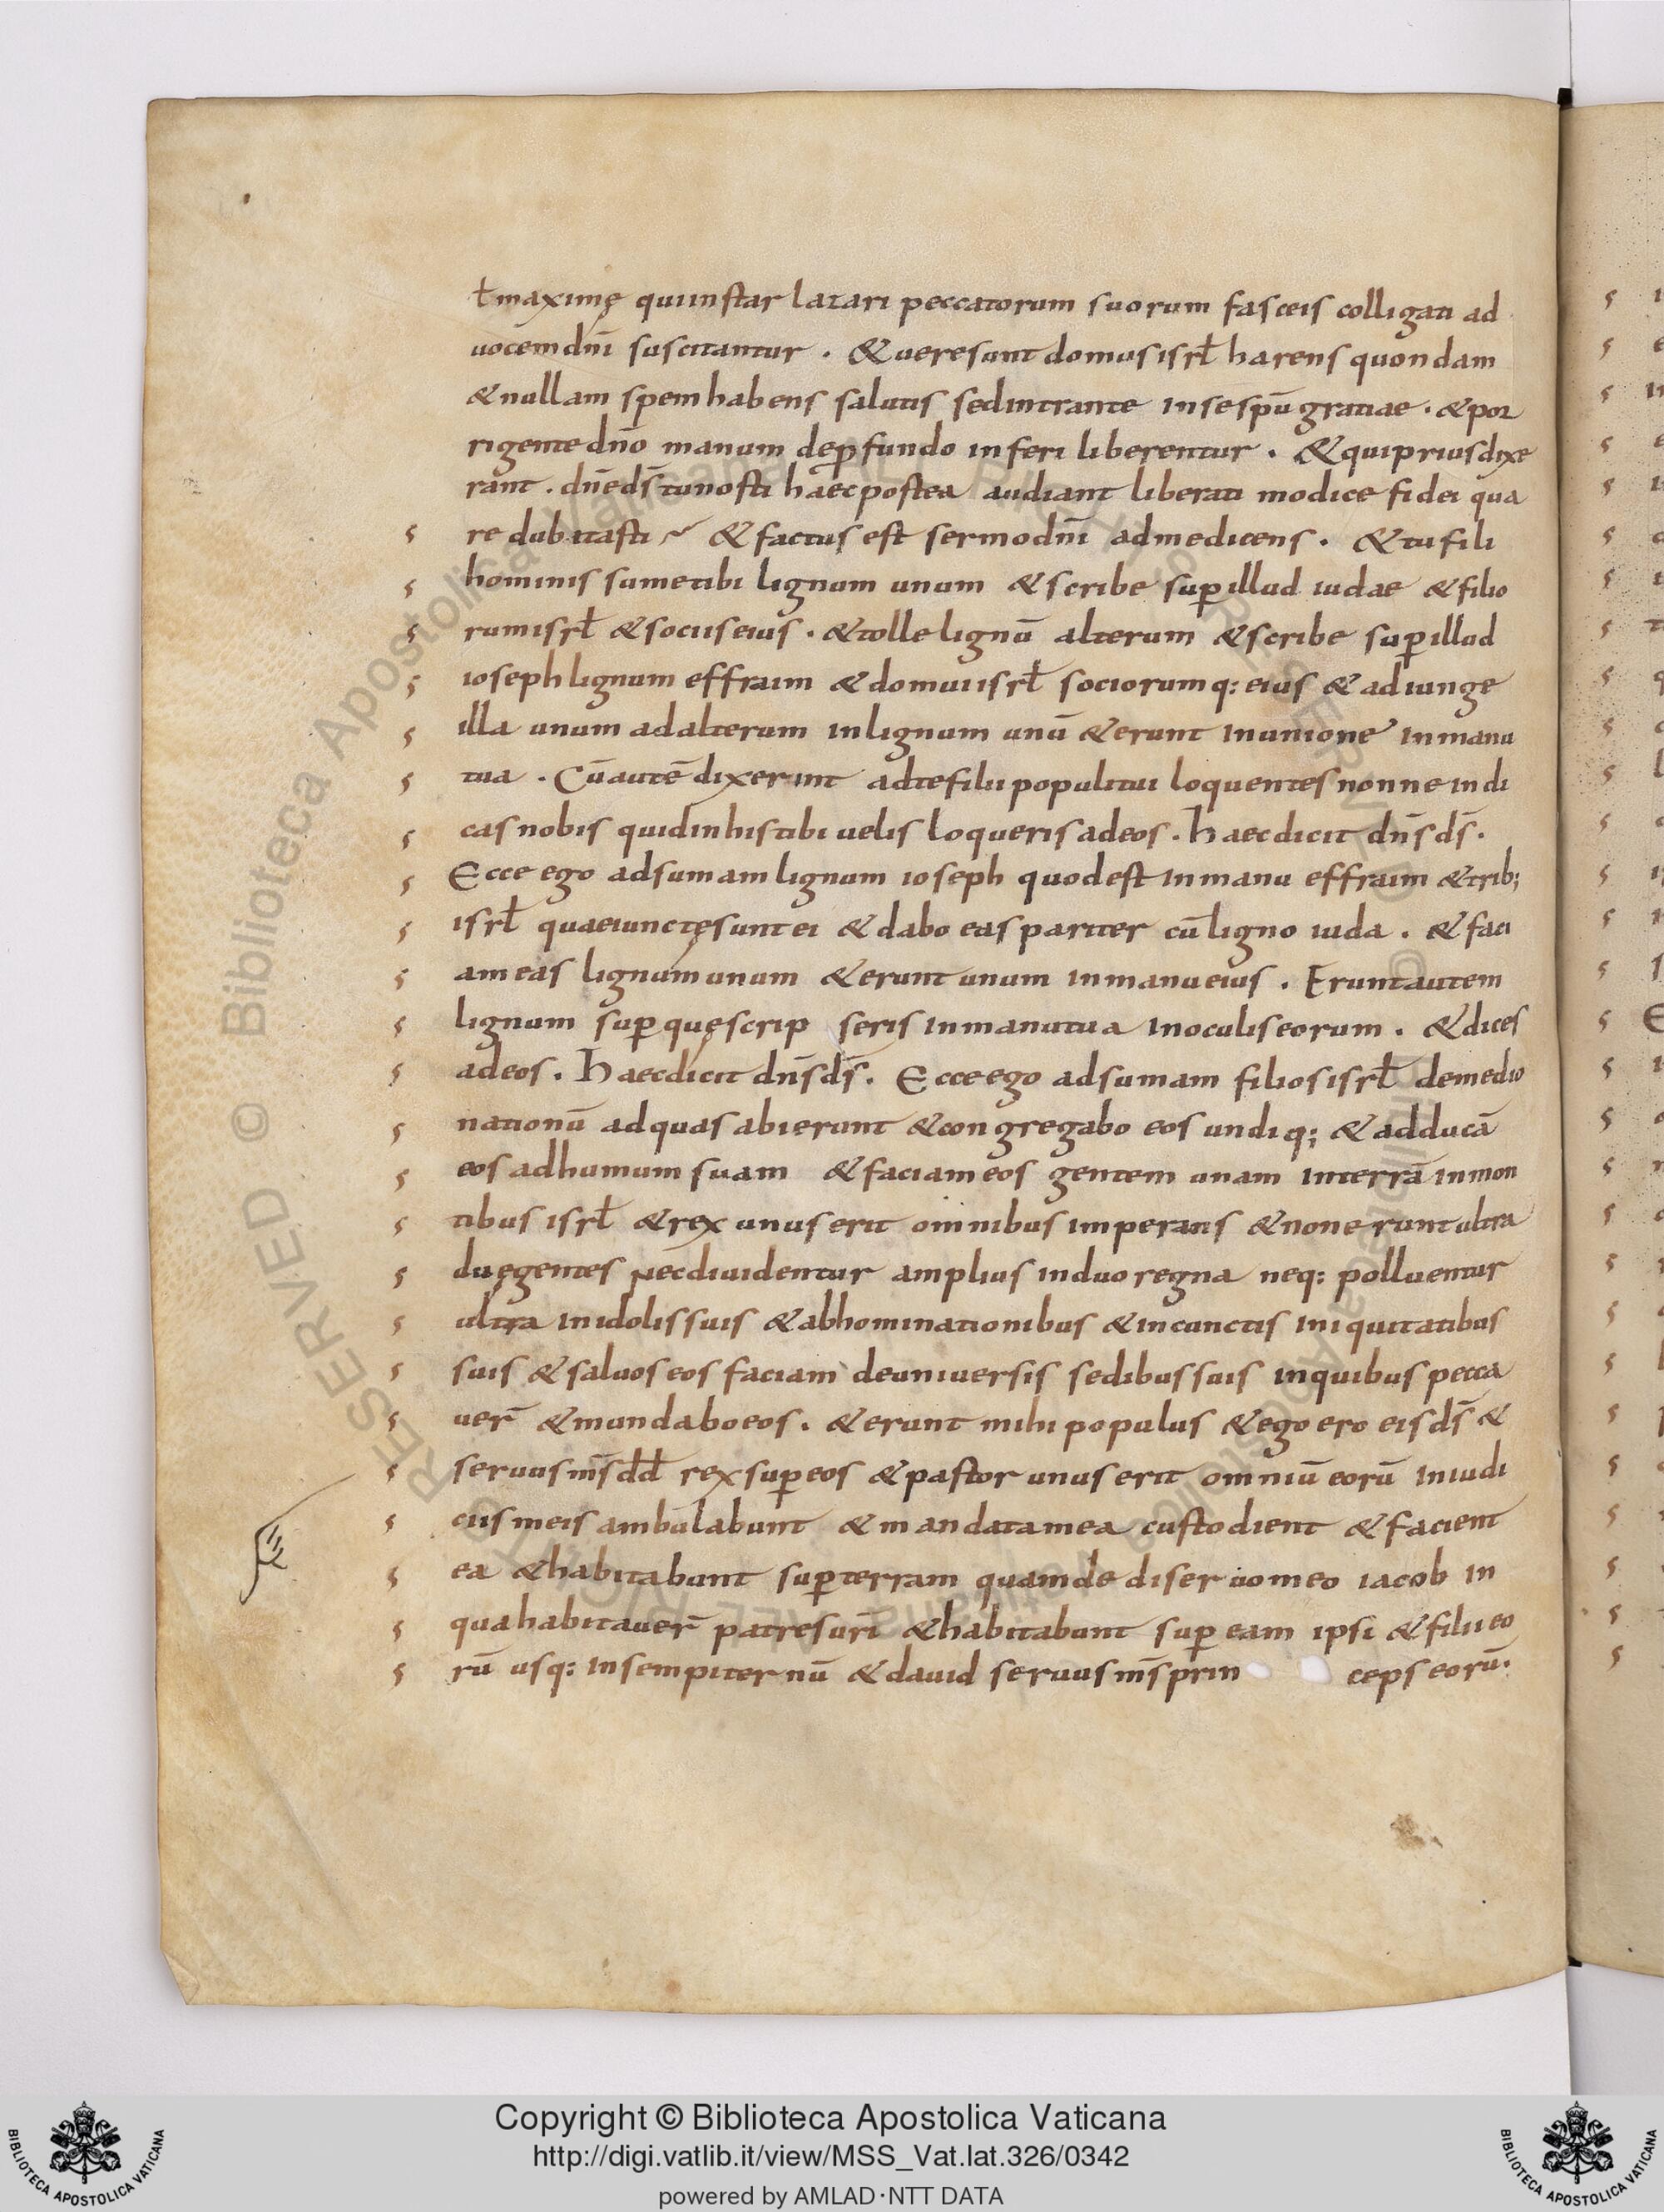 ł maximę qui instar lazari peccatorum suorum fasceis colligati ad
uocem dn̄i suscitantur . & uere sunt domus isrł harens quondam
& nullam spem habens salutis sed intrante in se sp̄u gratiae . & por
rigente dn̄o manum de ꝓfundo inferi liberentur . & qui prius dixe
rant . dn̄e ds̄ tu nosti haec postea audiant liberati modice fidei qua
re dubitasti & factus est sermo dn̄i ad me dicens . & tu fili
hominis sume tibi lignum unum & scribe suꝑ illud iudae & filio
rum isrł & sociis eius . & tolle lignū alterum & scribe suꝑ illud
ioseph lignum effraim & domui isrł sociorumq: eius & adiunge
illa unum ad alterum in lignum unū & erunt in unione in manu
tua . Cū autē dixerint ad te filii populi tui loquentes nonne indi
cas nobis quid in his tibi uelis loqueris ad eos . haec dicit dn̄s ds̄ .
Ecce ego adsumam lignum ioseph quod est in manu effraim & trib;
isrł quae iunctę sunt ei & dabo eas pariter cū ligno iuda . & faci
am eas lignum unum & erunt unum in manu eius . Erunt autem
lignum suꝑ quę scrip seris in manu tua in oculis eorum . & dices
ad eos . haec dicit dn̄s ds̄ . Ecce ego adsumam filios isrł de medio
nationū ad quas abierunt & congregabo eos undiq; & adducā
eos ad humum suam & faciam eos gentem unam in terrā in mon
tibus isrł & rex unus erit omnibus imperans & non erunt ultra
duę gentes nec diuidentur amplius in duo regna neq: polluentur
ultra in idolis suis & abhominationibus & in cunctis iniquitatibus
suis & saluos eos faciam de uniuersis sedibus suis in quibus pecca
uer̄ & mundabo eos . & erunt mihi populus & ego ero eis ds̄ &
seruus ms̄ dd̄ rex suꝑ eos & pastor unus erit omniū eorū in iudi
ciis meis ambulabunt & mandata mea custodient & facient
ea & habitabunt suꝑ terram quam dedi seruo meo iacob in
qua habitauer̄ patres ur̄i & habitabunt suꝑ eam ipsi & filii eo
rū usq: in sempiternū & dauid seruus ms̄ prin ceps eorū .
Copyright © Biblioteca Apostolica Vaticana
http://digi.vatlib.it/view/MSS_Vat.lat.326/0342
powered by AMLAD·NTT DATA
BIBLIOTECA APOSTOLICA VATICANA
BIBLIOTECA APOSTOLICA VATICANA